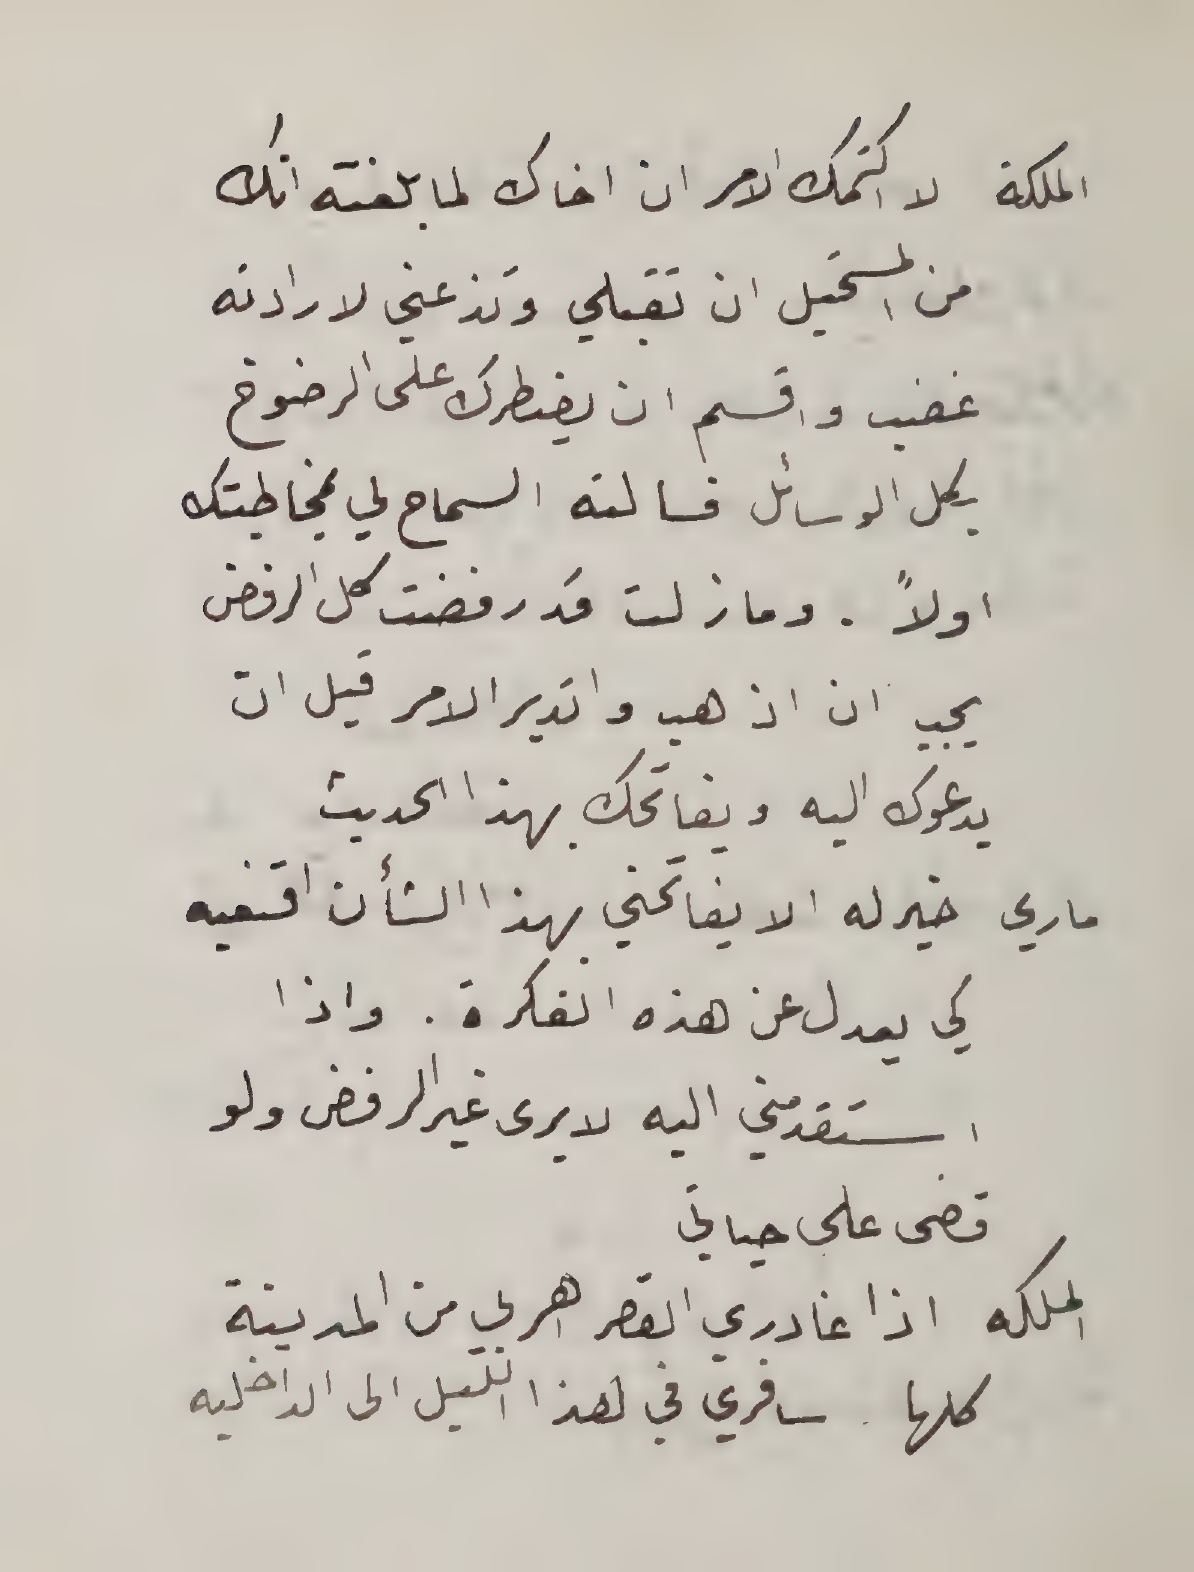 الملكة لا اكتمك الامر ان اخاك لما بلغته انك
من المستحيل ان تقبلي وتذعني لارادته
غضب واقسم ان يضطرك على الرضوخ
بكل الوسائل فسالته السماح لي بمخاطبتك
اولاً . وما زلت قد رفضت كل الرفض
يجب ان اذهب واتدبر الامر قبل ان
يدعوك اليه ويفاتحك بهذا الحديث
ماري خير له الا يفاتحني بهذا الشأن اقنعيه
كي يعدل عن هذه الفكرة . واذا
استقدمني اليه لا يرى غير الرفض ولو
قضى على حياتي
الملكه اذا غادري القصر اهربي من المدينة
كلها . سافري في هذا الليل الى الداخليه